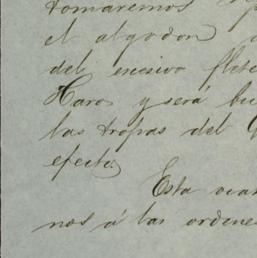 tomaremos
el algodon
del excesivo flete
Haro y será bu
las tropas del G
efecto.
Esta oca
nos á las ordene